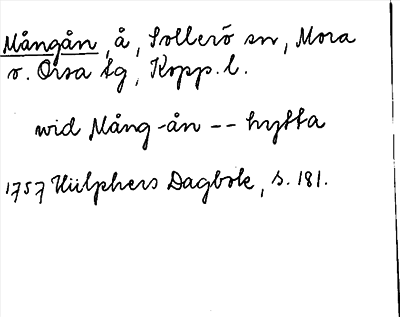 Mångån, å, Sollerö sn, Mora
o. Orsa tg, Kopp. l.
wid Mång-ån -- hytta
1757 Hülphers Dagbok, s. 181.